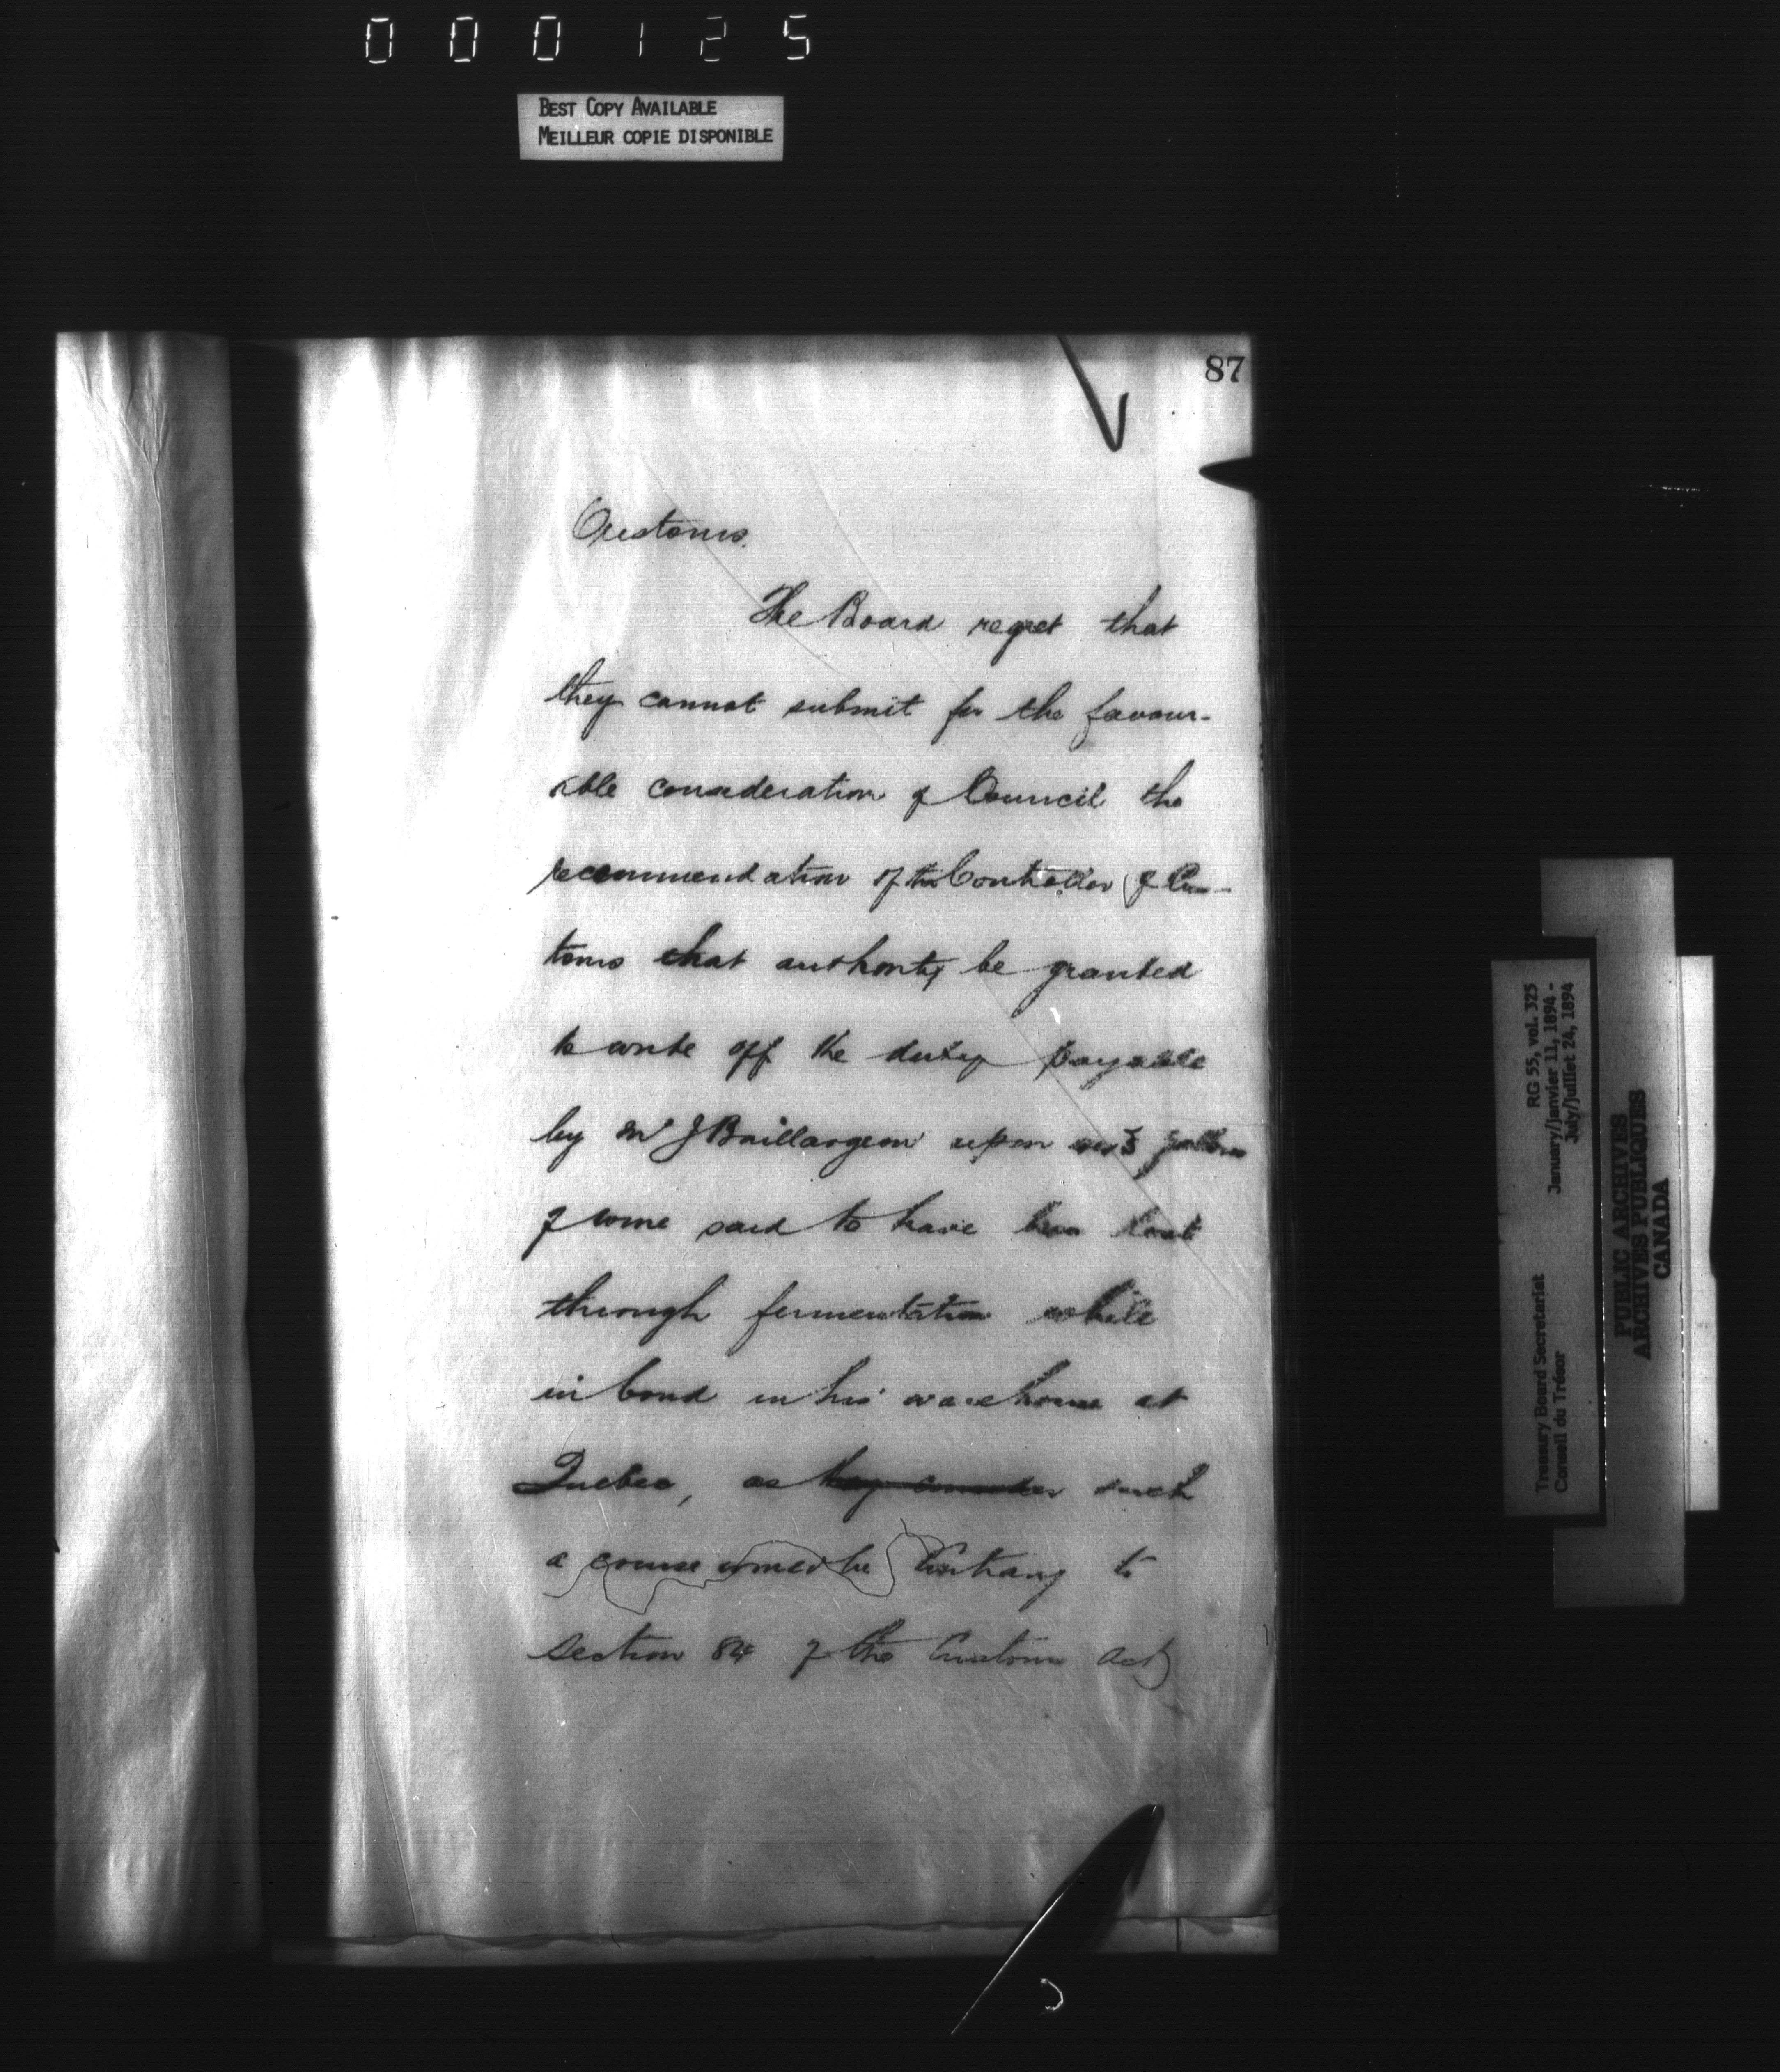 000125
BEST COPY AVAILABLE
MEILLEUR COPIE DISPONIBLE
87
Customs.
The Board regret that
they cannot submit for the favour-
able consideration of Council the
recommendation of the Controller of Cus-
toms that authority be granted
to write off the duty payable
by Mr J Baillargeon upon gallons
of wine said to have been lost
through fermentation while
in bond in his warehouse at
Quebec, as they consider such
a course would be contrary to
section 84 of the Customs Act
RG 55, vol. 325
January/janvier 11, 1894 -
July/juillet 24, 1894
Treasury Board Secretariat
Conseil du Trésor
PUBLIC ARCHIVES
ARCHIVES PUBLIQUES
CANADA